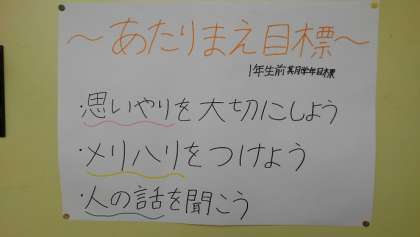 ～あたりまえ目標～
1年生前期学年目標
・思いやりを大切にしよう
・メリハリをつけよう
・人の話を聞こう